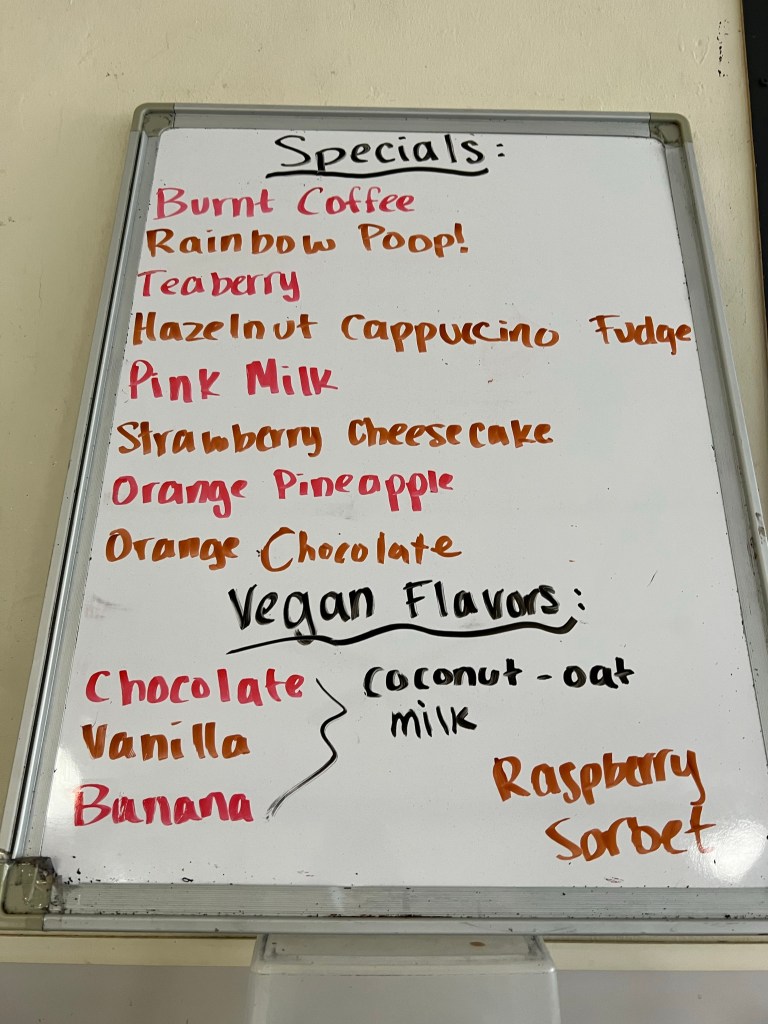 Specials:
Burnt Coffee
Rainbow Poop!
Teaberry
Hazelnut Cappuccino Fudge
Pink Milk
Strawberry Cheesecake
Orange Pineapple
Orange Chocolate
Vegan Flavors:
Chocolate
Vanilla
Banana
coconut - oat
milk
Raspberry
Sorbet